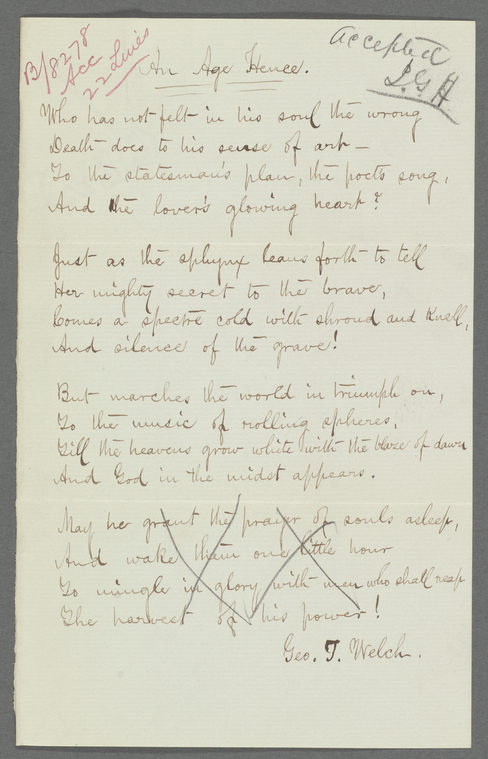 B/8278
Acc
22 Lines
Accepted
An Age Hence.
Who has not felt in his soul the wrong
Death does to his sense of art—
To the statesman's plan, the poet's song,
And the lover's glowing heart?
Just as the sphynx leans forth to tell
Her mighty secret to the brave,
Comes a spectre cold with shroud and knell,
And silence of the grave!
But marches the world in triumph on,
To the music of rolling spheres,
Till the heavens grow white with the blaze of dawn
And God in the midst appears.
May he grant the prayer of souls asleep,
And wake them one little hour
To mingle in glory with men who shall reap
The harvest of his power!
Geo. T. Welch.